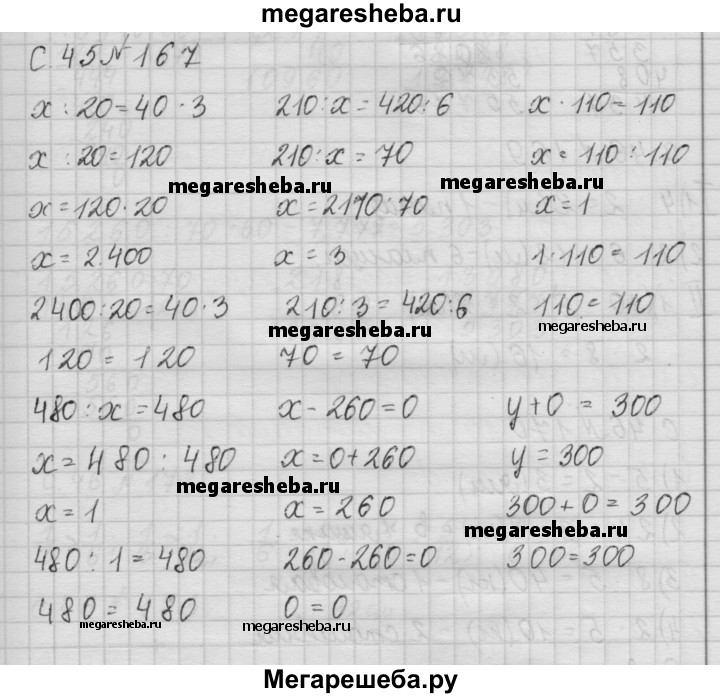 megaresheba.ru
С. 45 № 167
x : 20 = 40 · 3    210 : x = 420 : 6    x · 110 = 110
x : 20 = 120    210 : x = 70    x = 110 : 110
megaresheba.ru    megaresheba.ru
x = 120 · 20    x = 210 : 70    x = 1
x = 2 400    x = 3    1 · 110 = 110
2400 : 20 = 40 · 3    210 : 3 = 420 : 6    110 = 110
megaresheba.ru    megaresheba.ru
120 = 120    70 = 70
480 : x = 480    x - 260 = 0    y + 0 = 300
x = 480 : 480    x = 0 + 260    y = 300
megaresheba.ru
x = 1    x = 260    300 + 0 = 300
megaresheba.ru
480 : 1 = 480    260 - 260 = 0    300 = 300
480 = 480    0 = 0
megaresheba.ru    megaresheba.ru
Мегарешеба.ру